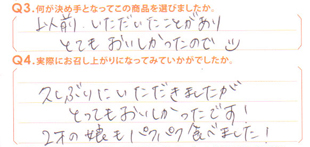 Q3.何が決め手となってこの商品を選びましたか。
以前 いただいたことがあり
とてもおいしかったので
Q4.実際にお召し上がりになってみていかがでしたか。
久しぶりにいただきましたが
とってもおいしかったです!
2才の娘もパクパク食べました!